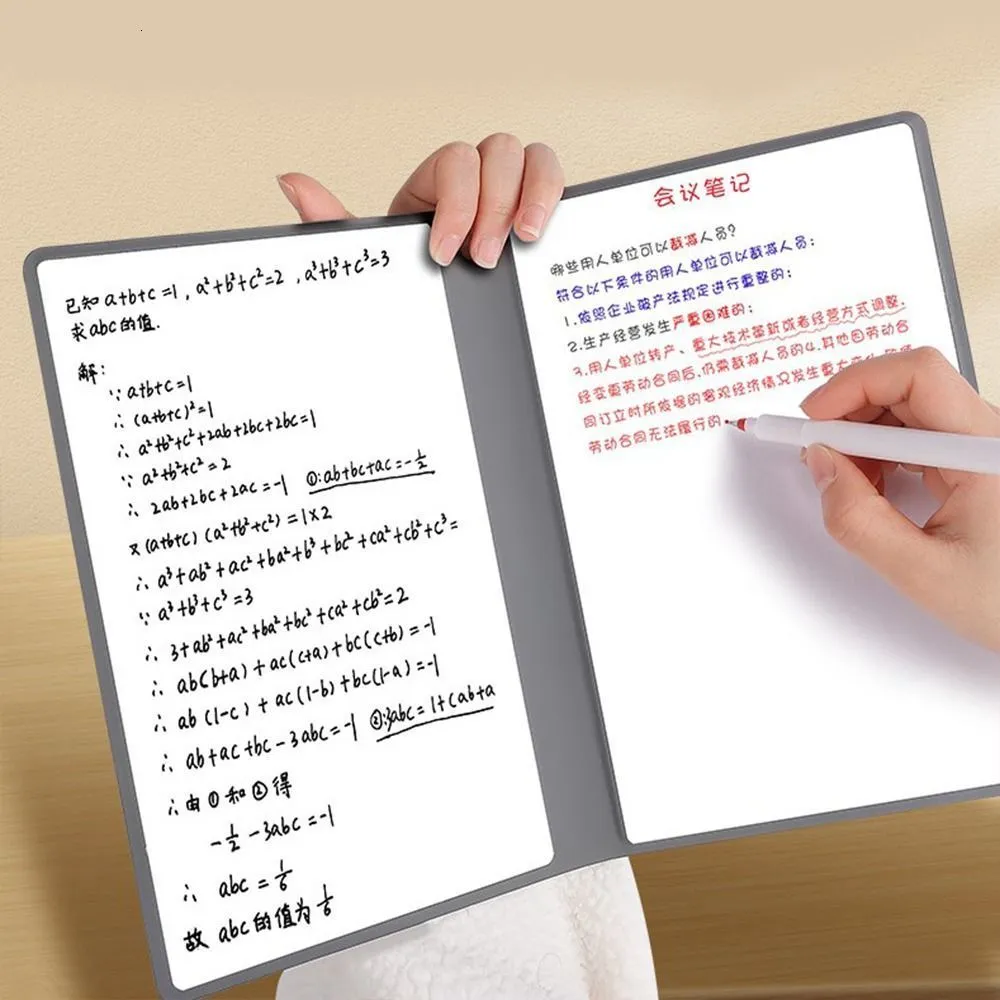 已知 a+b+c=1, a²+b²+c²=2, a³+b³+c³=3
求abc的值.
解:
∵ a+b+c=1
∴ (a+b+c)²=1
∴ a²+b²+c²+2ab+2bc+2bc=1
∵ a²+b²+c²=2
∴ 2ab+2bc+2ac=-1 ①:ab+bc+ac=-1/2
又(a+b+c)(a²+b²+c²)=1×2
∴ a³+ab²+ac²+ba²+b³+bc²+ca²+cb²+c³=
∵ a³+b³+c³=3
∴ 3+ab²+ac²+ba²+bc²+ca²+cb²=2
∴ ab(b+a)+ac(c+a)+bc(c+b)=-1
∴ ab(1-c)+ac(1-b)+bc(1-a)=-1
∴ ab+ac+bc-3abc=-1 ②:3abc=1+(ab+a
∴由①和②得
-1/2-3abc=-1
∴ abc=1/6
故 abc的值为1/6
会议笔记
哪些用人单位可以裁减人员?
符合以下条件的用人单位可以裁减人员:
1.依照企业破产法规定进行重整的;
2.生产经营发生严重困难的;
3.用人单位转产、重大技术革新或者经营方式调整,
经变更劳动合同后,仍需裁减人员的4.其他因劳动合
同订立时所依据的客观经济情况发生重大变化,
劳动合同无法履行的